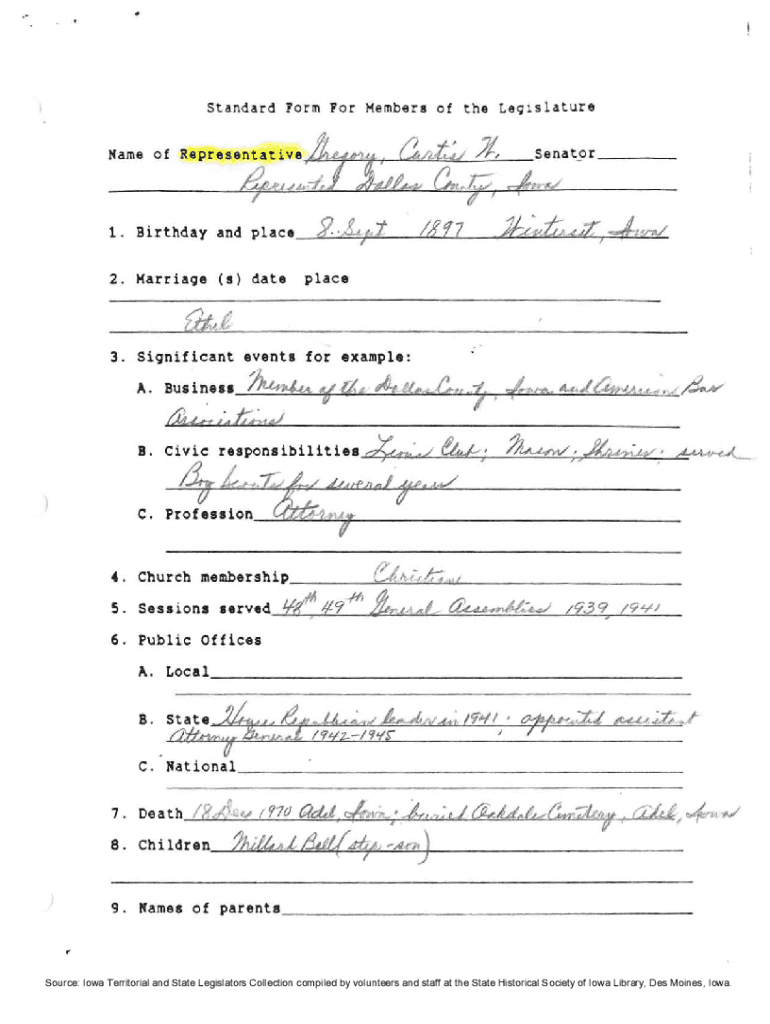 Standard Form For Members of the Legislature
Name of Representative Gregory, Curtis W. Senator
Represented Dallas County, Iowa
1. Birthday and place 8 Sept 1897 Winterset, Iowa
2. Marriage (s) date place
Ethel
3. Significant events for example:
A. Business Member of the Dallas County, Iowa and American Bar
Associations
B. Civic responsibilities Lions Club; Mason; Shriner; served
Boy Scouts for several years
C. Profession Attorney
4. Church membership Christian
5. Sessions served 48th, 49th General Assemblies 1939, 1941
6. Public Offices
A. Local
B. State House Republican leader in 1941; appointed assistant
Attorney General 1942-1945
C. National
7. Death 18 Dec 1970 Adel, Iowa; buried Oakdale Cemetery, Adel, Iowa
8. Children Millard Bell (step-son)
9. Names of parents
Source: Iowa Territorial and State Legislators Collection compiled by volunteers and staff at the State Historical Society of Iowa Library, Des Moines, Iowa.